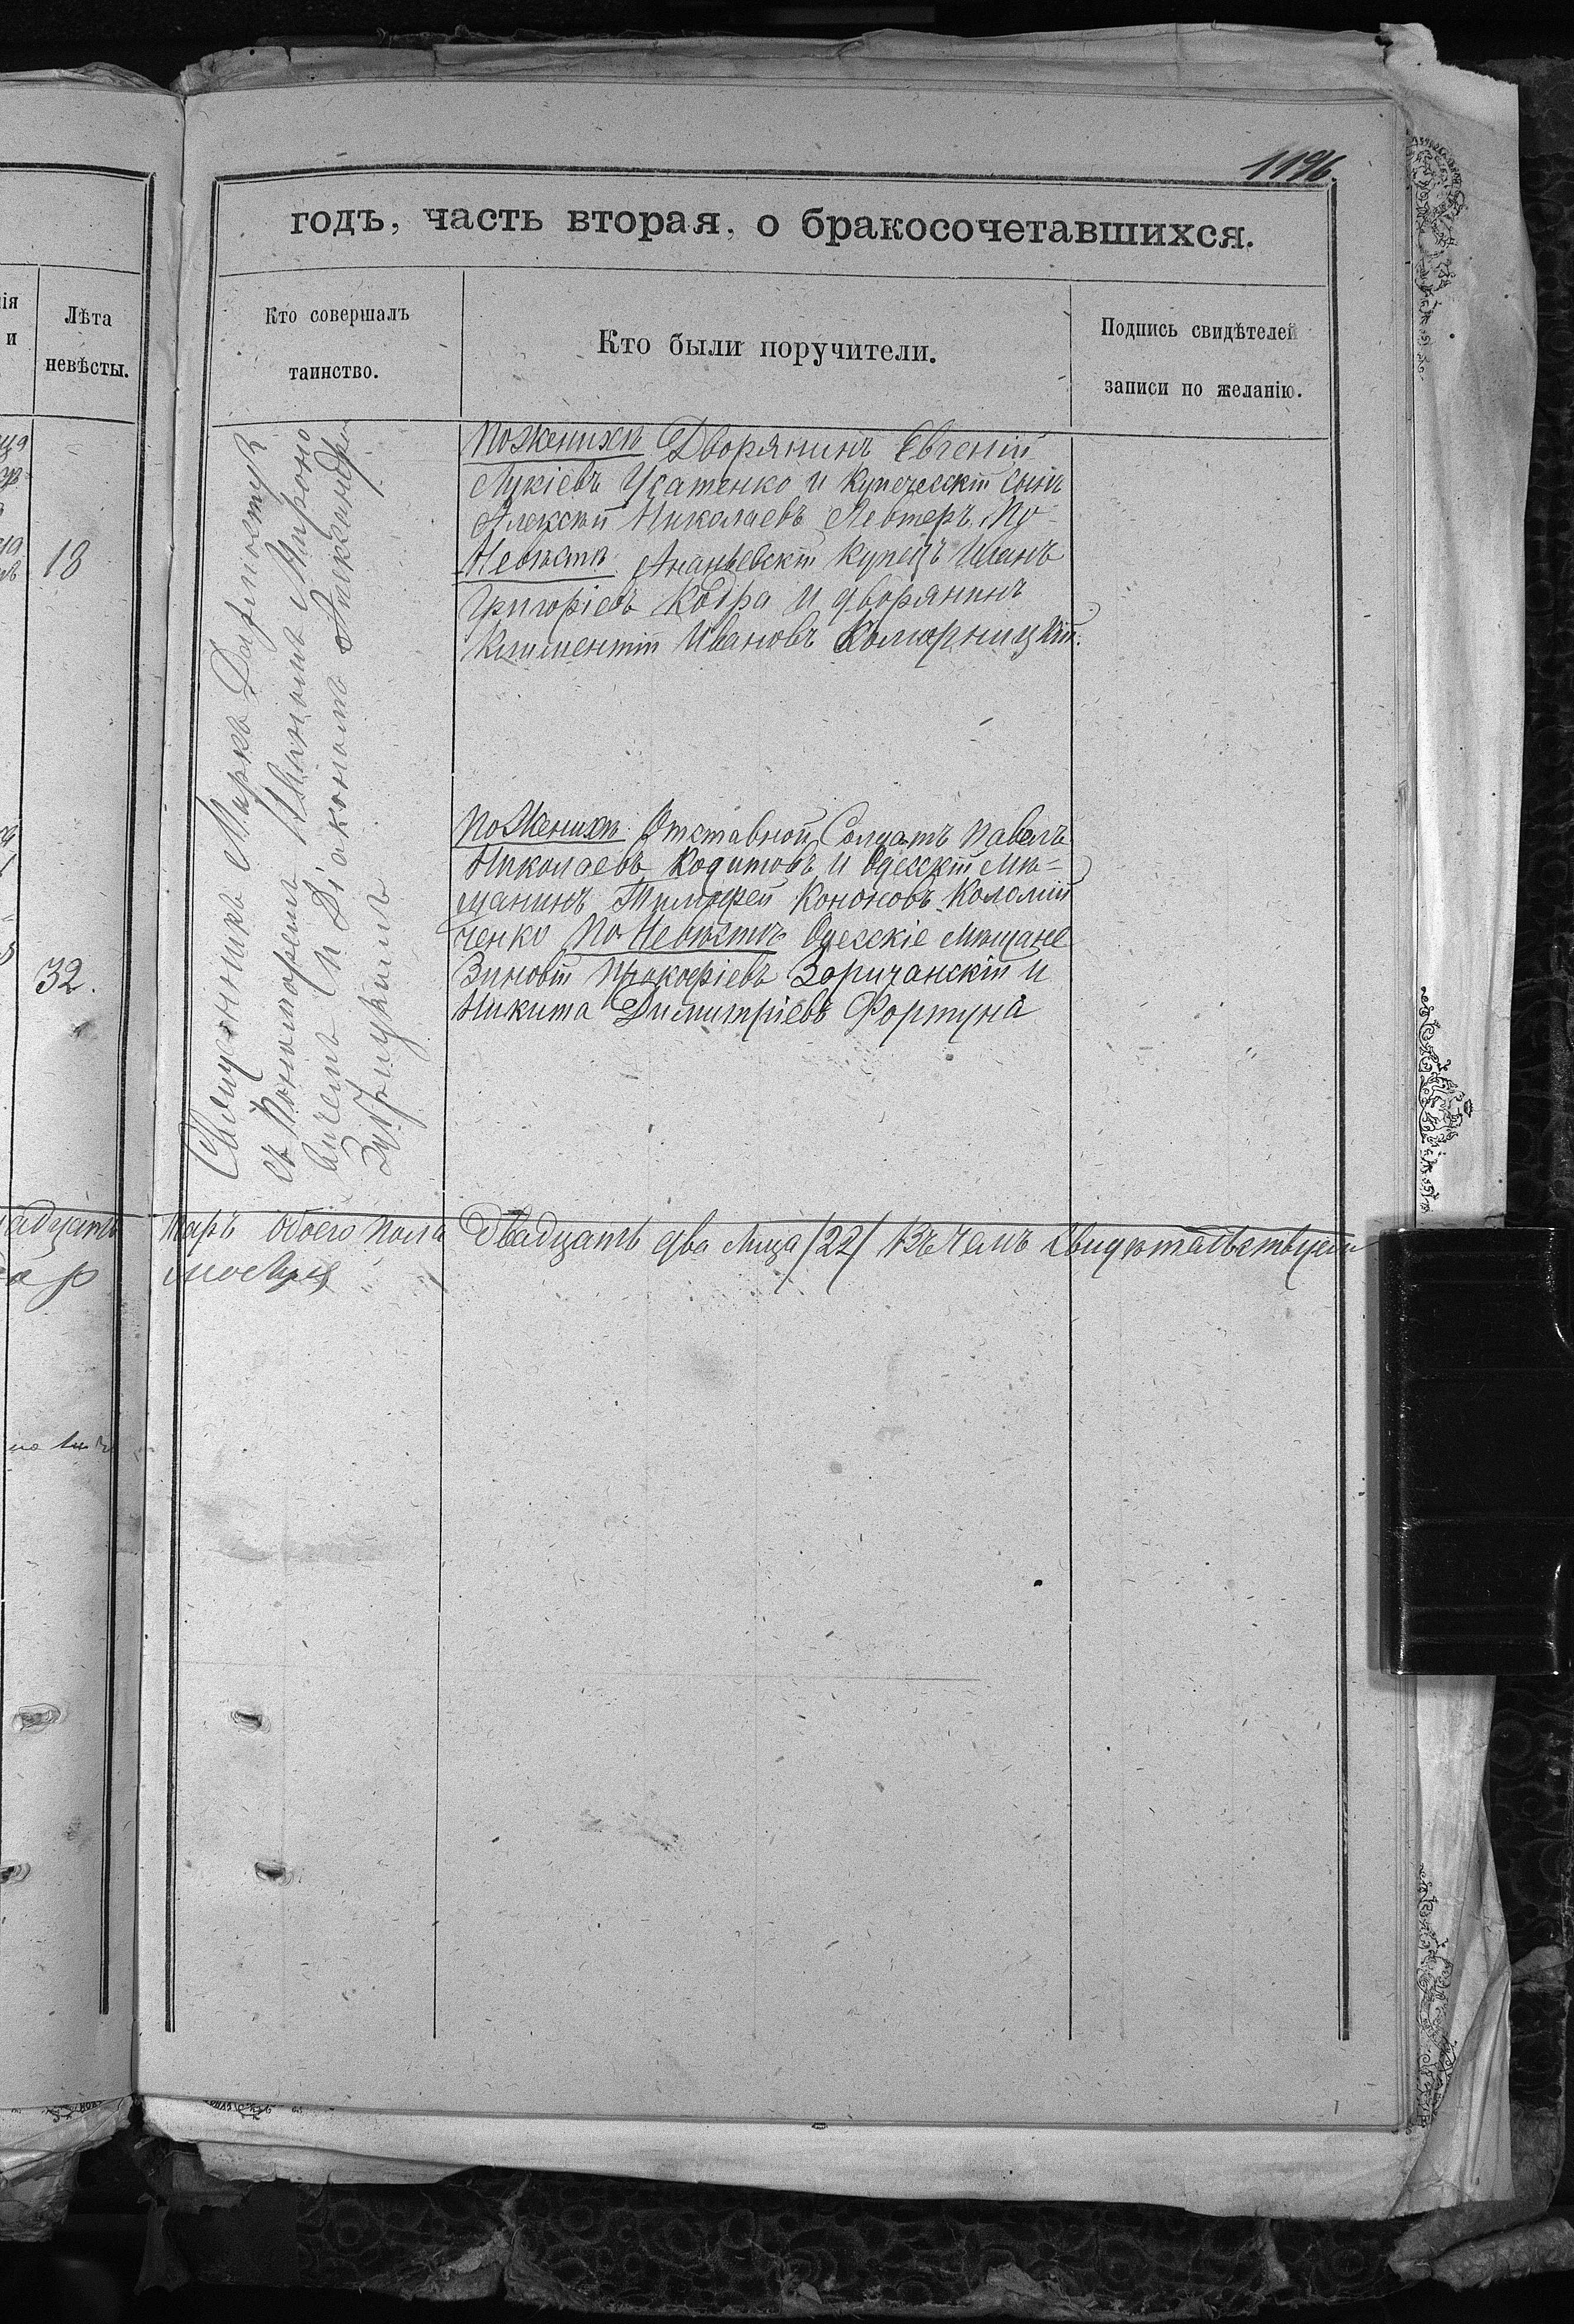 1196.
годъ, часть вторая, о бракосочетавшихся.
Лѣта
невѣсты.
Кто совершалъ
таинство.
Кто были поручители.
Подпись свидѣтелей
записи по желанію.
18
32.
Священникъ Маркъ
съ Пономаремъ Иваномъ Мироно
вичемъ и Діакономъ Александро
По женихѣ Дворянинъ Евгеній
Лукіевъ Усатенко и Купеческій Сынъ
Алексѣй Николаевъ Левтеръ. По
Невѣстѣ. Ананьевскій Купецъ Иванъ
Григоріевъ Кодра и дворянинъ
Климентій Ивановъ Коморницкій.
По Женихѣ. Отставной Солдатъ Павелъ
Николаевъ и Одесскій Мѣ-
щанинъ Тимофей Кононовъ Коломій
ченко По Невѣстѣ Одесскіе Мѣщане
Зиновій Прокофіевъ Заричанскій и
Никита Димитріевъ Фортуна
паръ обоего пола Двадцать два лица /22/ Въ чемъ свидѣтельствуемъ